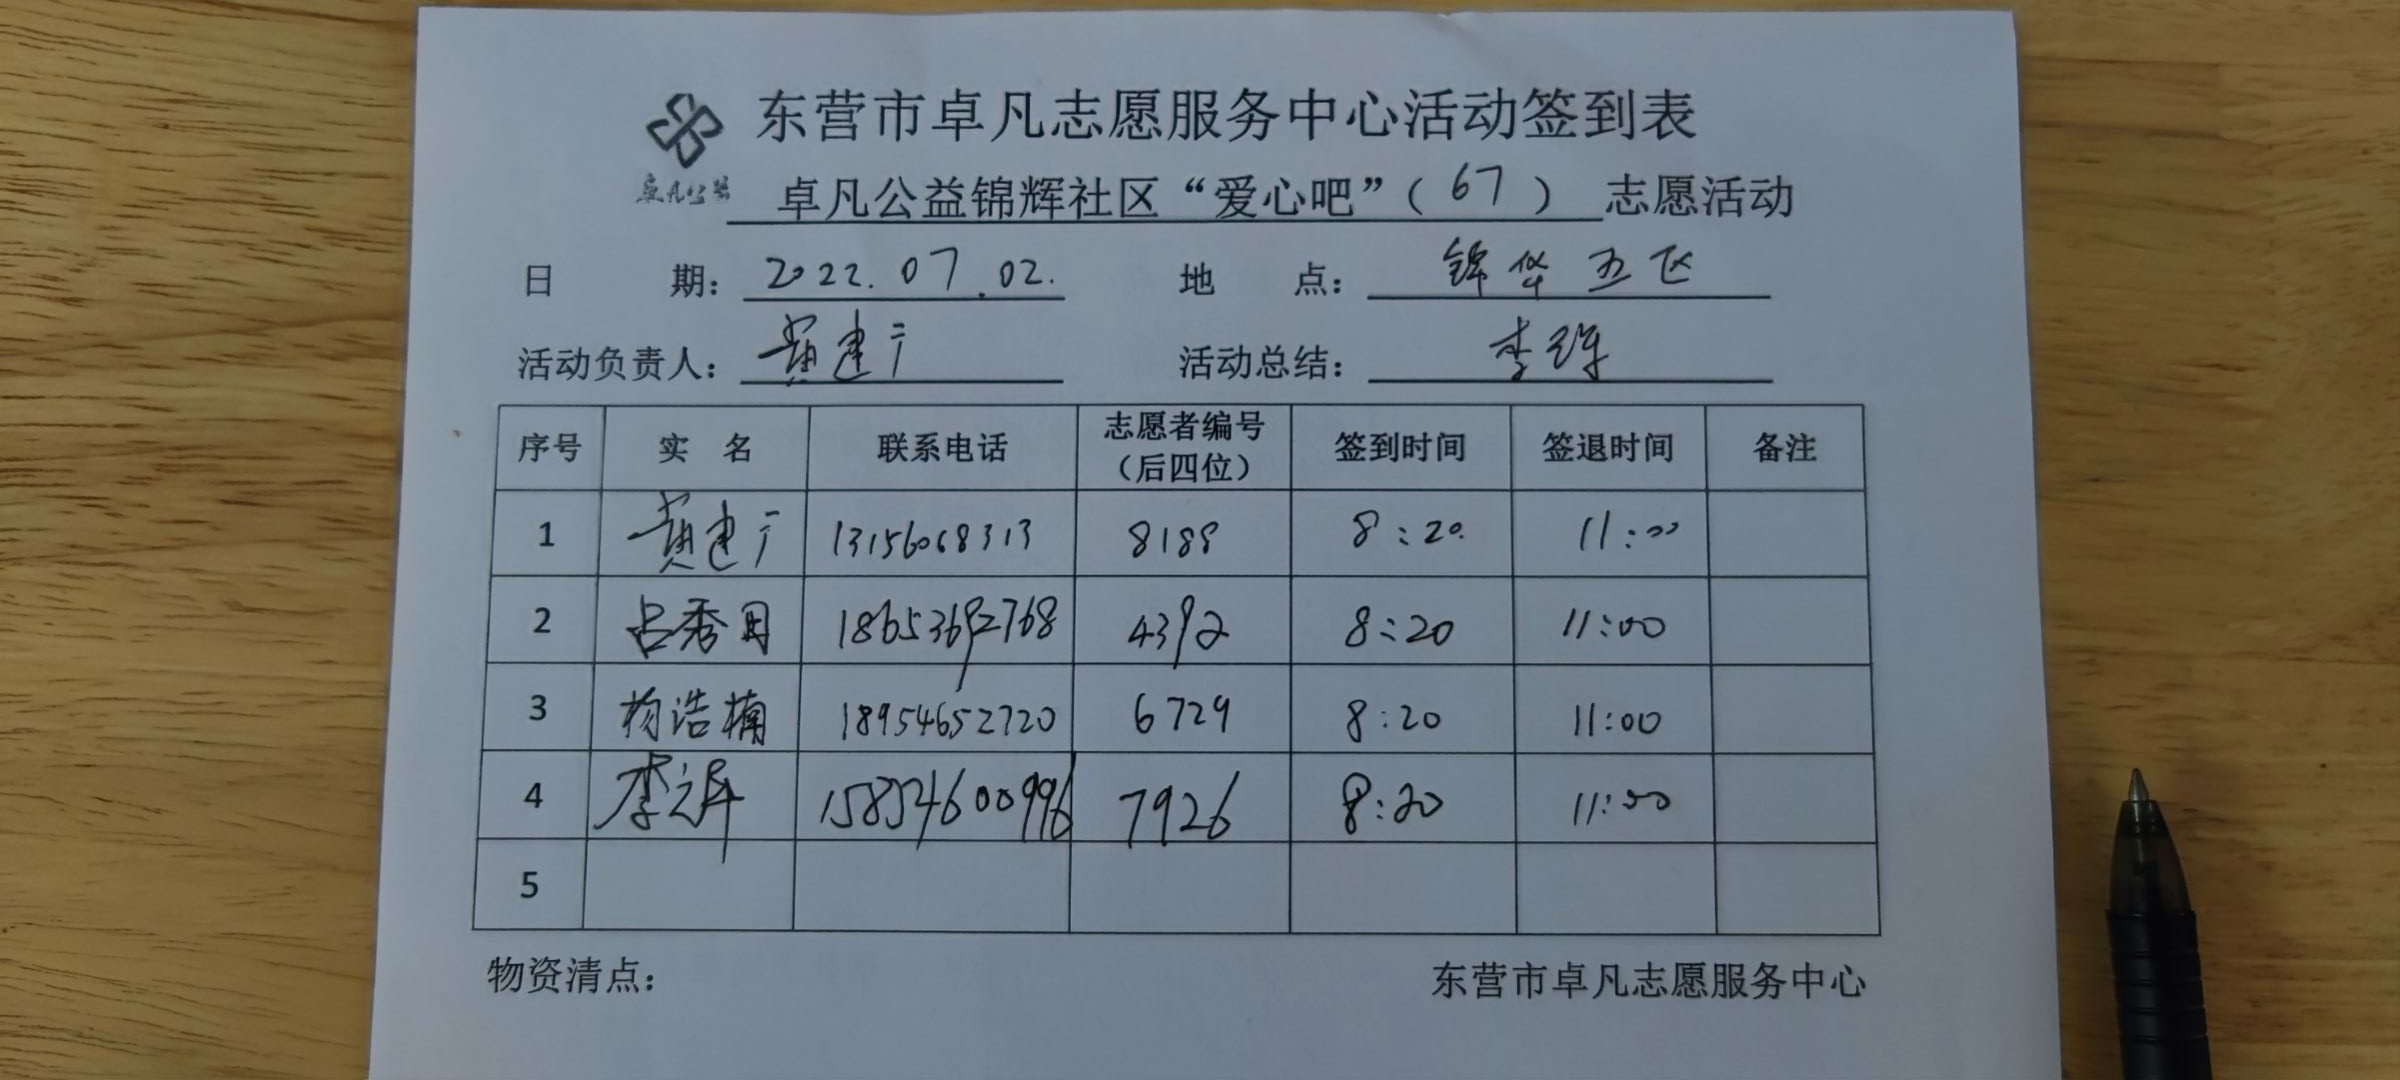 东营市卓凡志愿服务中心活动签到表
卓凡公益
卓凡公益锦辉社区“爱心吧”(67)志愿活动
日期：2022.07.02. 地点：锦华五区
活动负责人：黄建广 活动总结：李
序号 实名 联系电话 志愿者编号（后四位） 签到时间 签退时间 备注
1 黄建广 13156068313 8189 8:20. 11:00
2 占秀月 18653692768 4392 8:20 11:00
3 杨浩楠 18954652720 6729 8:20 11:00
4 李 15854600996 7926 8:20 11:00
5
物资清点： 东营市卓凡志愿服务中心